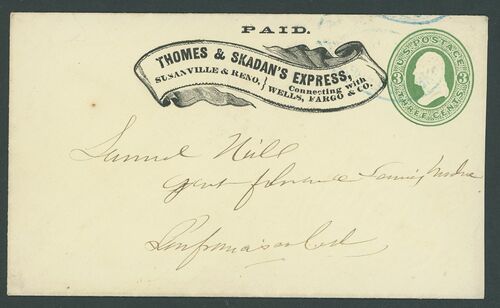 PAID.
THOMES & SKADAN'S EXPRESS,
SUSANVILLE & RENO. } Connecting with
WELLS, FARGO & CO.
U.S. POSTAGE
3 3
THREE CENTS
Samuel Hill
Genl
San francisco Cal